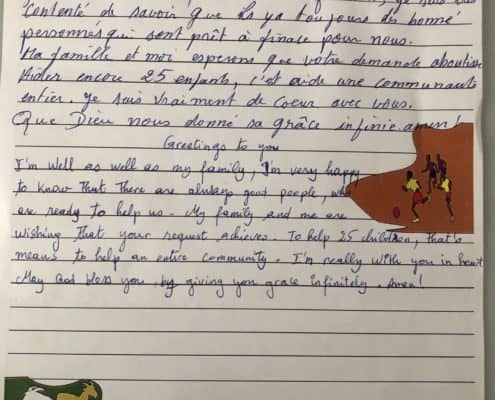 contenté de savoir que ils ya toujours des bonne
personnes qui sont prêt à finace pour nous.
Ma famille et moi esperons que votre demande aboutisse
Aider encore 25 enfants, c'est aide une communauté
entier. Je suis vraiment de coeur avec vous.
Que Dieu nous donné sa grâce infinie. amen!
Greetings to you
I'm well as well as my family, I'm very happy
to know that there are always good people, who
are ready to help us. My family and me are
wishing that your request achieves. To help 25 children, that's
means to help an entire community. I'm really with you in heart
May God bless you by giving you grace infinitely. Amen!